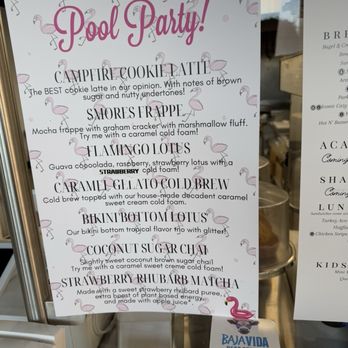 Pool Party!
CAMPFIRE COOKIE LATTE
The BEST cookie latte in our opinion. With notes of brown
sugar and nutty undertones!
SMORES FRAPPE
Mocha frappe with graham cracker with marshmallow fluff.
Try me with a caramel cold foam!
FLAMINGO LOTUS
Guava copoolada, raspberry, strawberry lotus with a
STRAWBERRY cold foam!
CARAMEL GELATO COLD BREW
Cold brew topped with our house-made decadent caramel
sweet cream cold foam.
BIKINI BOTTOM LOTUS
Our bikini bottom tropical flavor trio with glitter!
COCONUT SUGAR CHAI
Slightly sweet coconut brown sugar chai!
Try me with a caramel sweet creme cold foam!
STRAWBERRY RHUBARB MATCHA
Made with a sweet strawberry rhubarb puree,
extra boost of plant based energy
and made with apple juice*
BAJA VIDA
BRE
Bagel & Cre
ACA
Coming
SHA
Coming
LUN
Turkey, Sav
KIDS